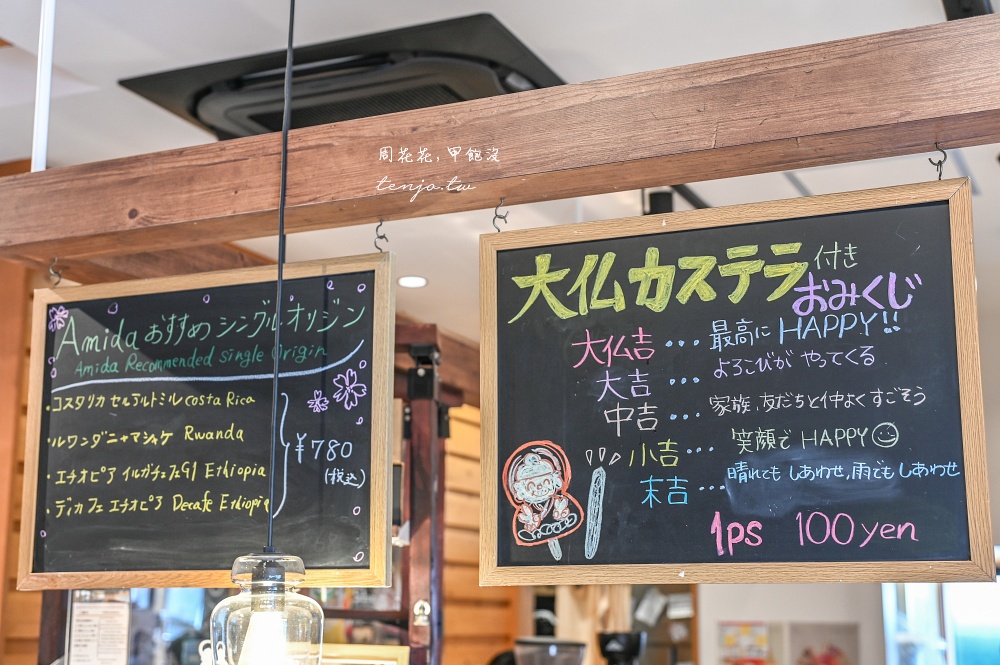 周花花,甲飽沒
tenjo.tw
Amida おすすめ シングルオリジン
Amida Recommended single Origin
・コスタリカ セルアルトミル costa Rica
・ルワンダ ニャマシャケ Rwanda
・エチオピア イルガチェフェG1 Ethiopia
・ディカフェ エチオピア Decafe Ethiopia
¥780
(税込)
大仏カステラ付き
おみくじ
大仏吉 … 最高に HAPPY!!
大吉 … よろこびが やってくる
中吉 … 家族、友だちと仲よくすごそう
小吉 … 笑顔で HAPPY
末吉 … 晴れても しあわせ,雨でも しあわせ
1ps 100yen